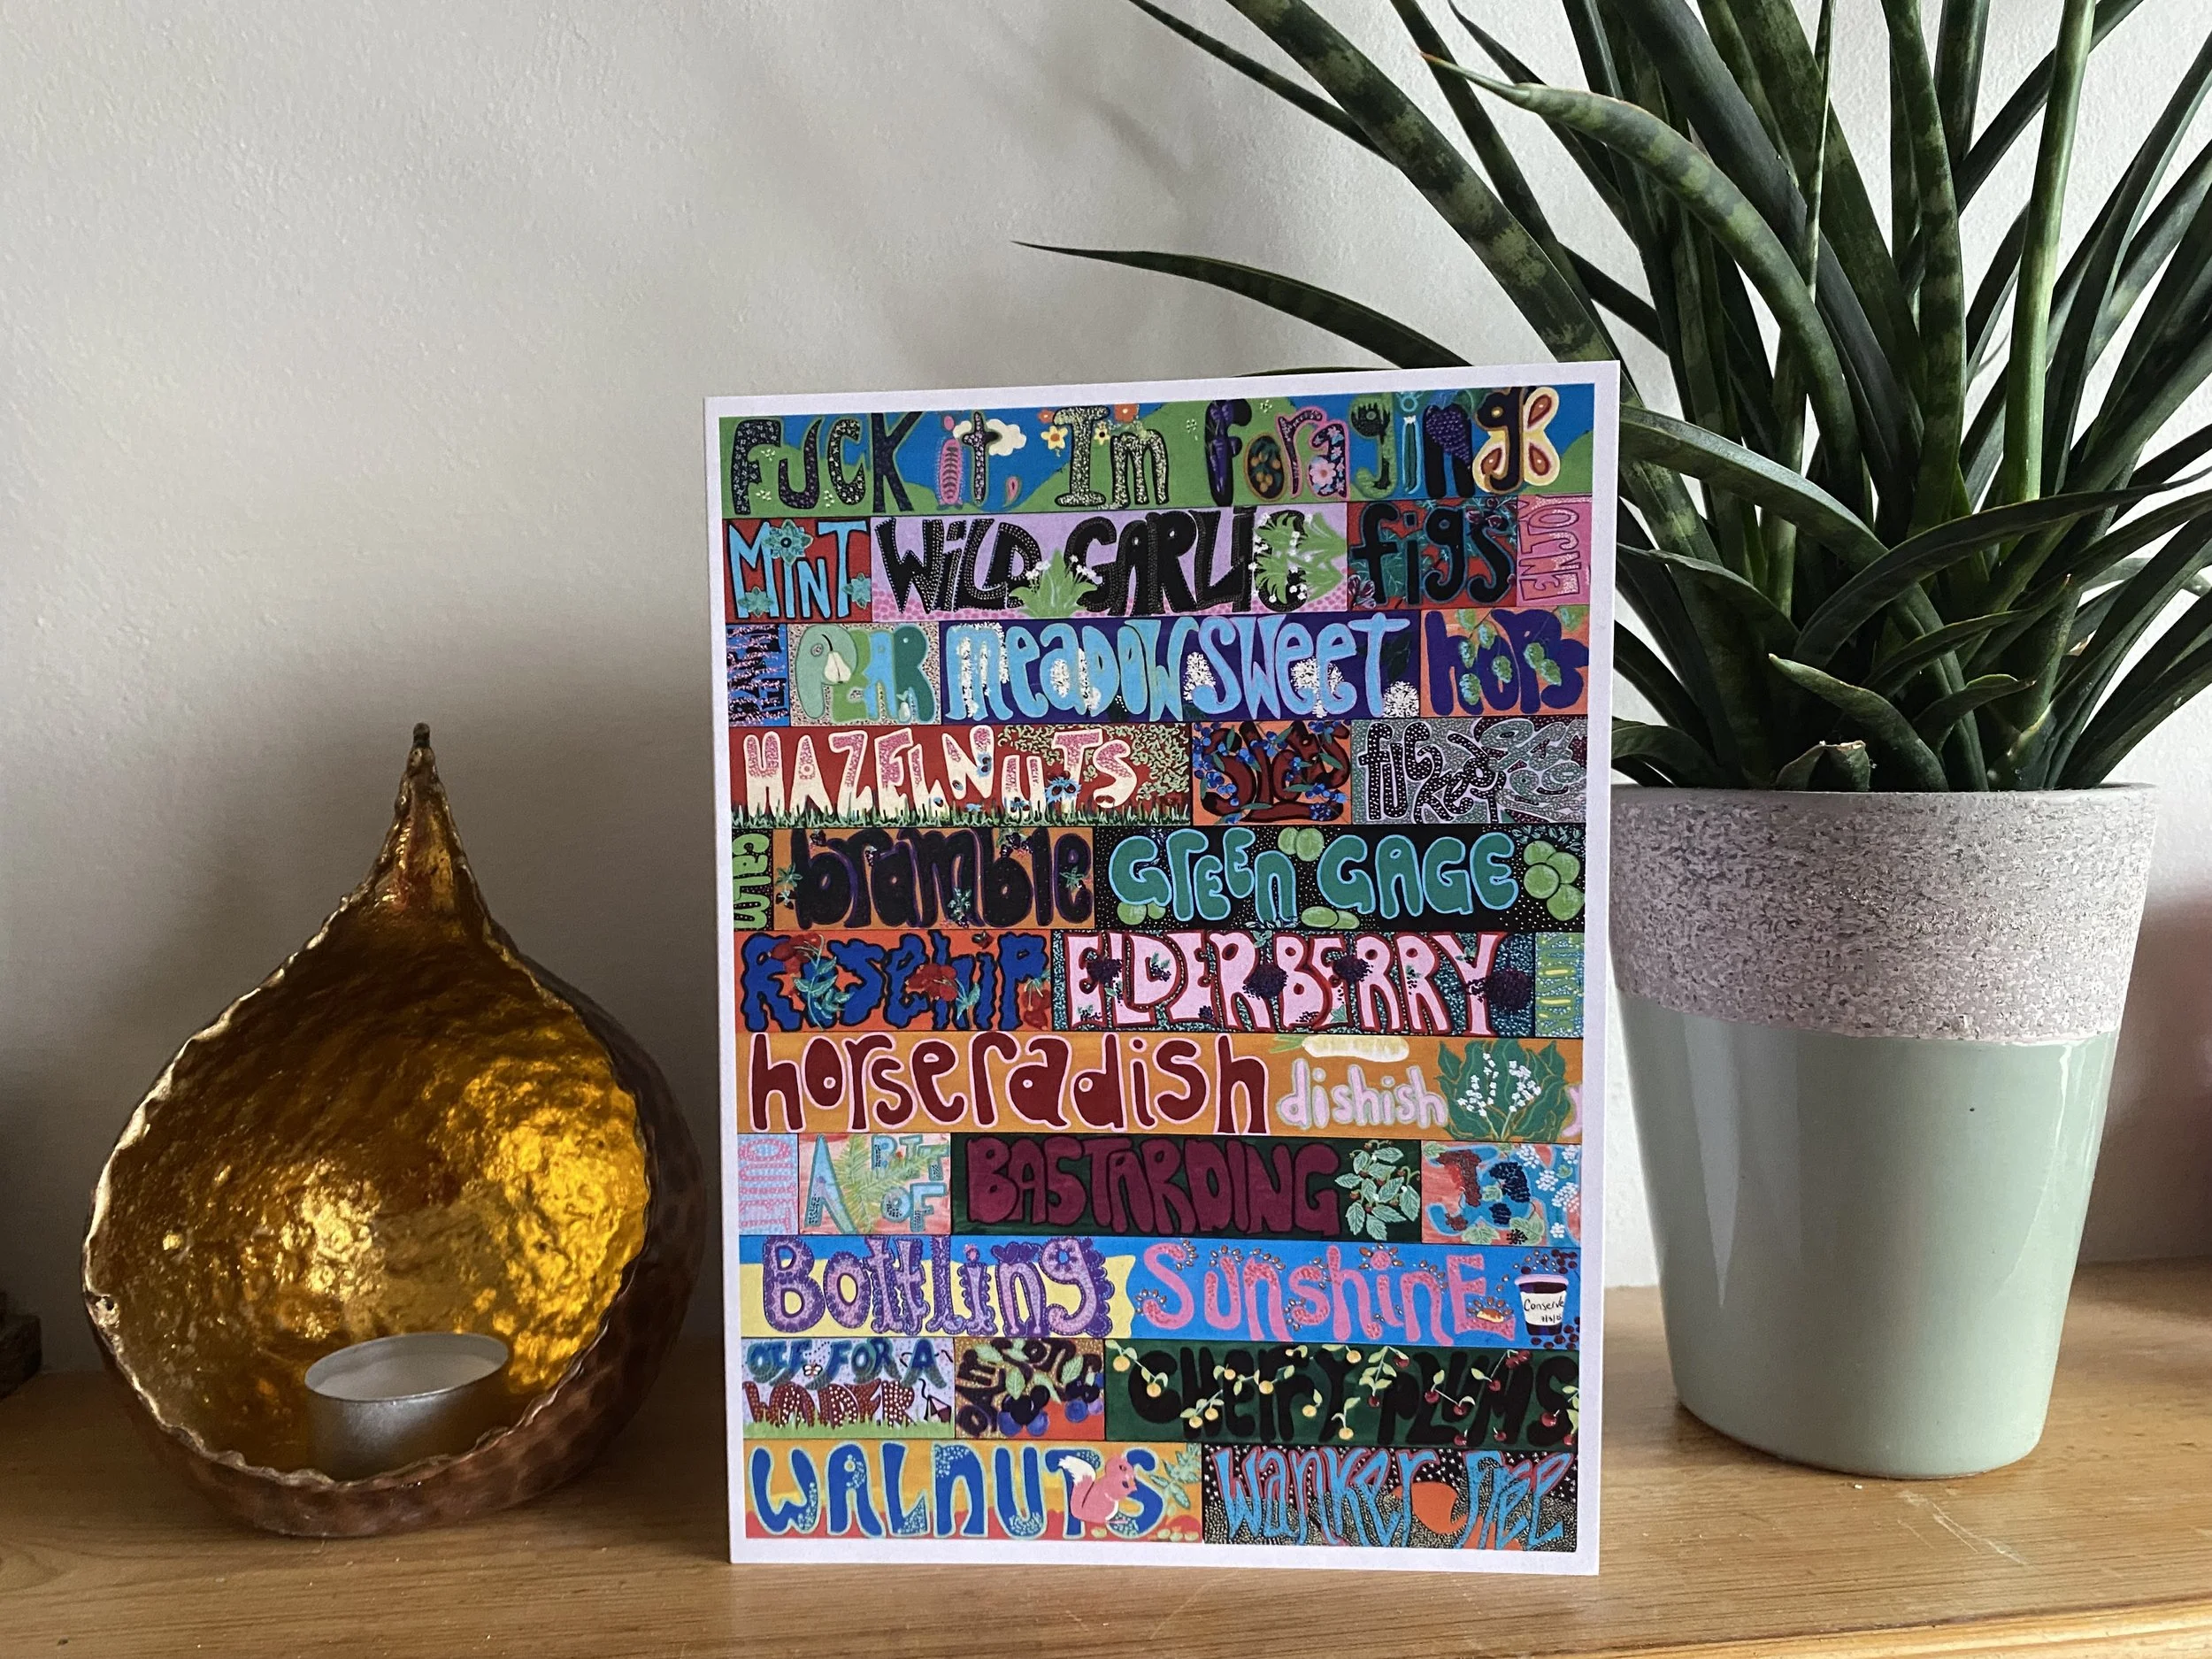 FUCK it, Im foraging
MiNT WiLD GARLIC figs ENJOY
PEAR meadowSWeet hops
HAZELNUTS Sloes
calm bramble GrEEn GAGE
Rosehip ELDERBERRY
horseradish dishish
QUIET A BIT OF BASTARDING
Bottling SunshinE Conserve
OFF FOR A WANDER DAMSONS CHerry PLUMS
WALnUTS wanker free